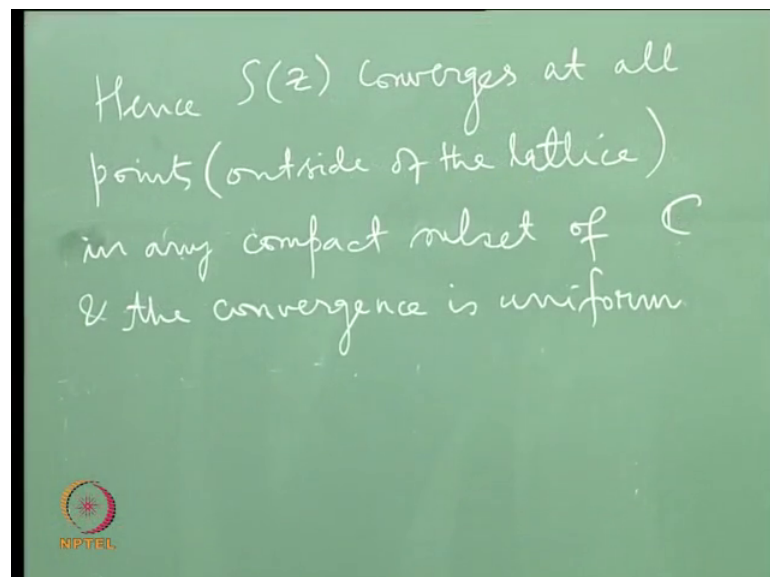 Hence S(z) converges at all
points (outside of the lattice)
in any compact subset of ℂ
& the convergence is uniform
NPTEL